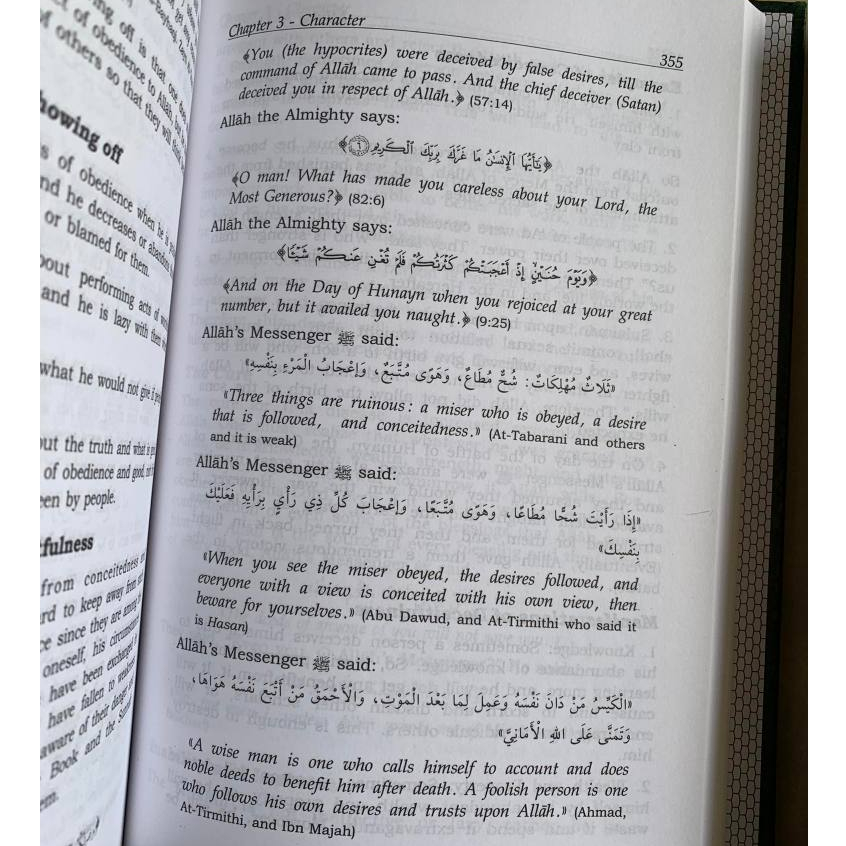 howing off
s of obedience when he is
or blamed for them.
out performing acts of
and he is lazy with them
what he would not give if
out the truth and what is
of obedience and good,
en by people.
fulness
from conceitedness
rd to keep away from
e since they are among
oneself, his circumstances
have been exchanged
have fallen to
aware of their danger
Book and the Sunnah
Chapter 3 - Character 355
﴾You (the hypocrites) were deceived by false desires, till the
command of Allāh came to pass. And the chief deceiver (Satan)
deceived you in respect of Allāh.﴿ (57:14)
Allāh the Almighty says:
﴿يَتَأَيُّهَا ٱلْإِنسَنُ مَا غَرَّكَ بِرَبِّكَ ٱلْكَرِيمِ ۝٦﴾
﴾O man! What has made you careless about your Lord, the
Most Generous?﴿ (82:6)
Allāh the Almighty says:
﴿وَيَوْمَ حُنَيْنٍ إِذْ أَعْجَبَتْكُمْ كَثْرَتُكُمْ فَلَمْ تُغْنِ عَنكُمْ شَيْئًا﴾
﴾And on the Day of Hunayn when you rejoiced at your great
number, but it availed you naught.﴿ (9:25)
Allāh's Messenger ﷺ said:
«ثَلَاثٌ مُهْلِكَاتٌ: شُحٌّ مُطَاعٌ، وَهَوًى مُتَّبَعٌ، وَإِعْجَابُ الْمَرْءِ بِنَفْسِهِ»
«Three things are ruinous: a miser who is obeyed, a desire
that is followed, and conceitedness.» (At-Tabarani and others
and it is weak)
Allāh's Messenger ﷺ said:
«إِذَا رَأَيْتَ شُحًّا مُطَاعًا، وَهَوًى مُتَّبَعًا، وَإِعْجَابَ كُلِّ ذِي رَأْيٍ بِرَأْيِهِ فَعَلَيْكَ
بِنَفْسِكَ»
«When you see the miser obeyed, the desires followed, and
everyone with a view is conceited with his own view, then
beware for yourselves.» (Abu Dawud, and At-Tirmithi who said it
is Hasan)
Allāh's Messenger ﷺ said:
«الْكَيِّسُ مَنْ دَانَ نَفْسَهُ وَعَمِلَ لِمَا بَعْدَ الْمَوْتِ، وَالْأَحْمَقُ مَنْ أَتْبَعَ نَفْسَهُ هَوَاهَا،
وَتَمَنَّى عَلَى اللهِ الْأَمَانِيَّ»
«A wise man is one who calls himself to account and does
noble deeds to benefit him after death. A foolish person is one
who follows his own desires and trusts upon Allāh.» (Ahmad,
At-Tirmithi, and Ibn Majah)